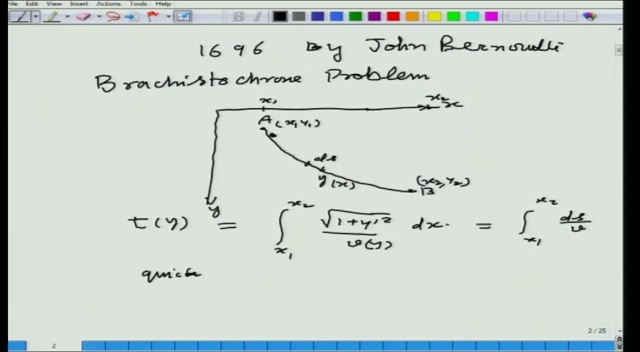 File Edit View Insert Actions Tools Help
1696 by John Bernoulli
Brachistochrone Problem
x₁ x₂ x
A(x₁,y₁)
ds
y(x)
(x₂,y₂)
B
y
T(y) = ∫_{x₁}^{x₂} √(1+y'²) / v(y) dx. = ∫_{x₁}^{x₂} ds/v
quick
2/25
2